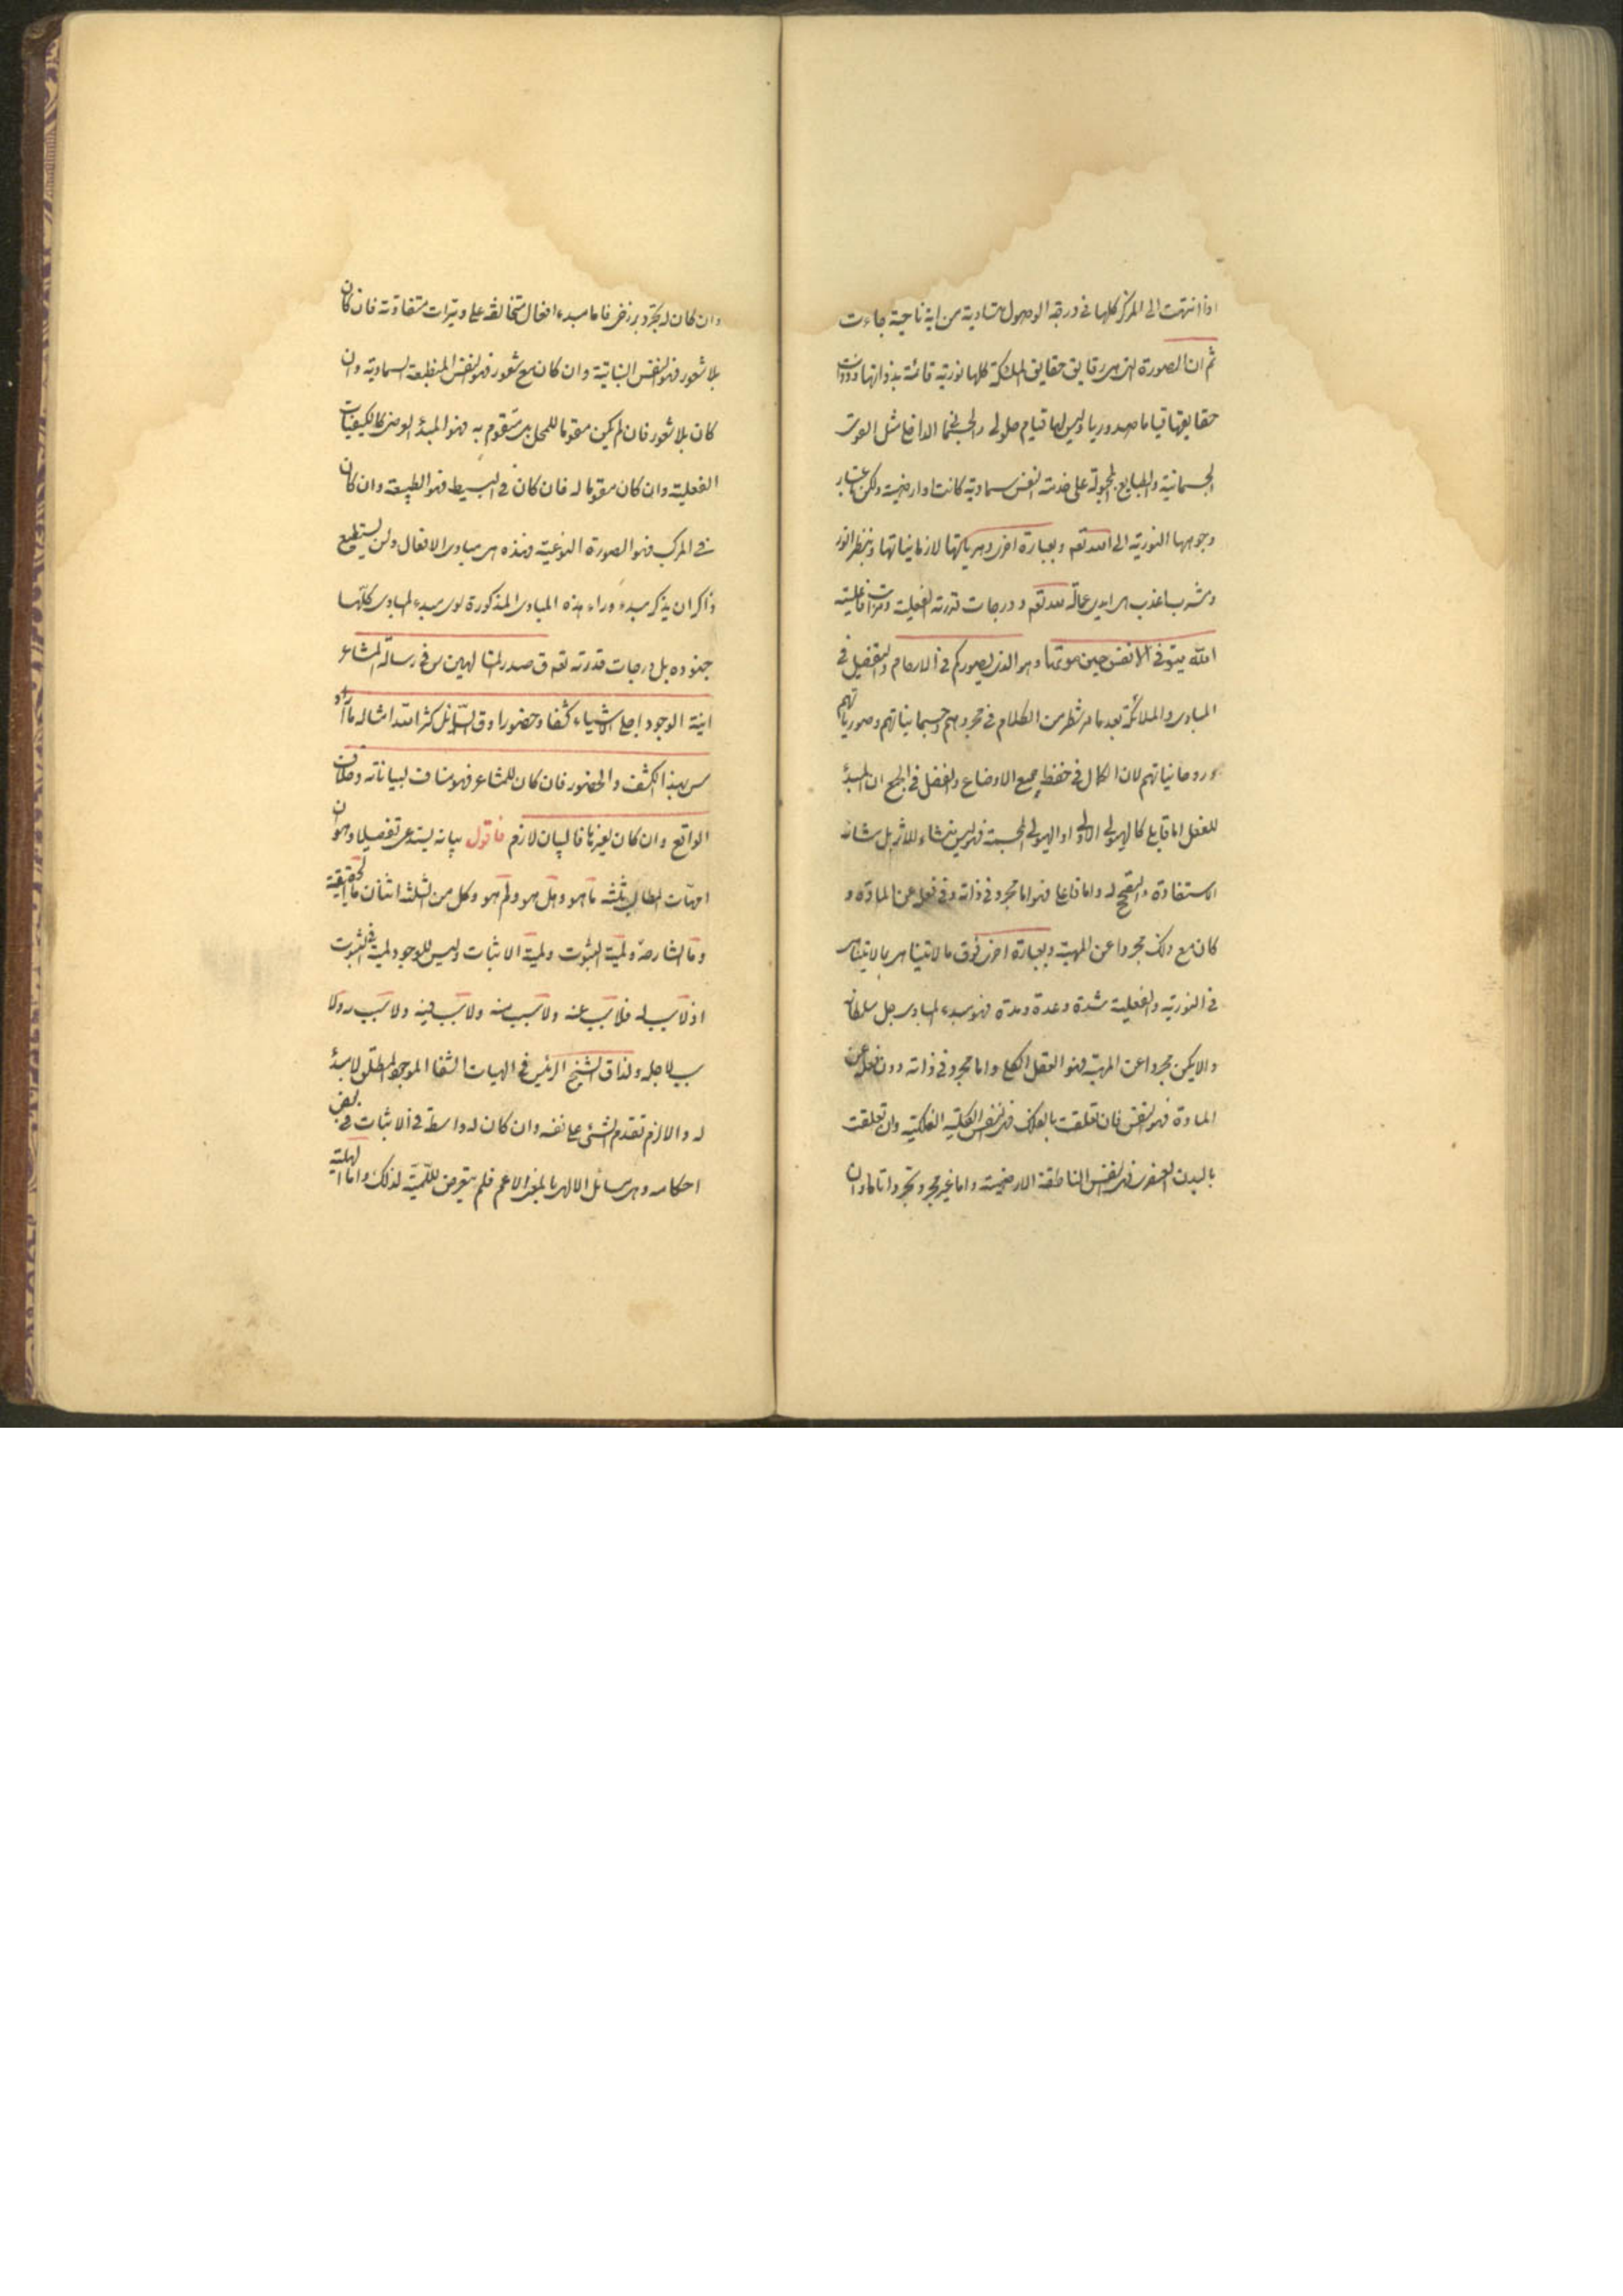 اذا انتهت الى المركز كلها فى درجة الوصول متساوية من اية ناحية جاءت
ثم ان الصورة التى هى رقايق حقايق الملئكة كلها نورية قائمة بذواتها وذوات
حقايقها قياما صدوريا وليس لها قيام حلولى مثل القوى
الجسمانية والطبايع المجبولة على خدمة النفس سماوية كانت او ارضية ولكن باعتبار
وجوهها النورية الى الله تعه وبعبارة اخرى وهرياتها لا زمانياتها وبنظر انور
ومشرب اعذب هى ايدى عمالة لله تعه ودرجات قدرته الفعلية ومراتب فاعليته
الله يتوفى الانفس حين موتها وهو الذى يصوركم فى الارحام والتفصيل فى
المبادى والملائكة بعد ما مر شطر من الكلام فى مجردهم وجسمانياتهم وصورياتهم
وروحانياتهم لان الكمال فى حفظ جميع الاوضاع والفضل فى الجمع ان المبدأ
للفعل اما قابل كالهيولى الاولى او الهيولى المجسمة فهو ليس منشاء للاثر بل شانه
الاستفادة له واما فاعل فهو اما مجرد فى ذاته وفى فعله عن المادة و
كان مع ذلك مجردا عن المهية وبعبارة اخرى فوق ما لا يتناهى بما لا يتناهى
فى النورية والفعلية شدة وعدة ومدة فهو مبدء المبادى جل سلطانه
والا يكن مجردا عن المهية فهو العقل الكلى واما مجرد فى ذاته دون فعله عن
المادة فهو النفس فان تعلقت بالفلك فهى النفس الكلية الفلكية وان تعلقت
بالبدن العنصرى فهى النفس الناطقة الارضية واما غير مجرد تجردا تاما وان
وان كان له تجرد برزخى فاما مبدء افعال متخالفة على وتيرات متفاوتة فان كان
بلا شعور فهو النفس النباتية وان كان مع شعور فهو النفس المنطبعة السماوية وان
كان بلا شعور فان لم يكن مقوما للمحل بل متقوم به فهو المبدأ العرضى كالكيفيات
الفعلية وان كان مقوما له فان كان فى البسيط فهو الطبيعة وان كان
فى المركب فهو الصورة النوعية فهذه هى مبادى الافعال ولن يستطيع
ذاكر ان يذكر مبدء وراء هذه المبادى المذكورة سوى مبدء المبادى كلها
جنوده بل درجات قدرته تعه ق صدر المتالهين س فى رسالة المشاعر
انية الوجود اجلى الاشياء كشفا وحضورا وق السائل كثر الله امثاله ما اراد
س بهذا الكشف والحضور فان كان للمشاعر فهو مناف لبياناته وخلاف
الواقع وان كان لغيرها فالبيان لازم فاقول بيانه يستدعى تفصيلا وهو ان
امهات المطالب ثلثة ما هو وهل هو ولم هو وكل من الثلثة اثنان ما الحقيقة
وما الشارحة ولمية الثبوت ولمية الاثبات وليس للوجود لمية فى الثبوت
اذ لا سبب له فلا سبب عنه ولا سبب منه ولا سبب فيه ولا سبب به ولا
سبب لاجله ولذا ق الشيخ الرئيس فى الهيات الشفا الموجود المطلق لا مبدأ
له والا لزم تقدم الشىء على نفسه وان كان له واسطة فى الاثبات فى بعض
احكامه وهى مسائل الالهى بالمعنى الاعم فلم يتعرض للمية لذلك واما الهلية